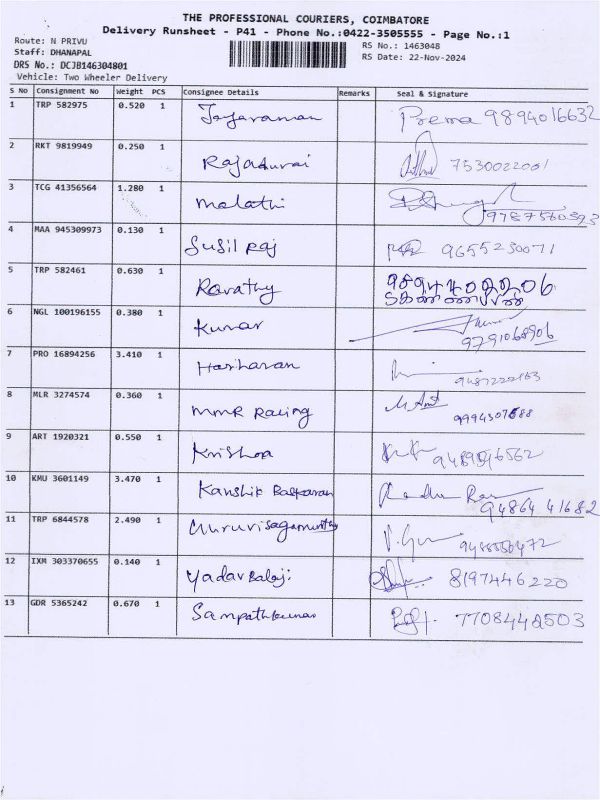 THE PROFESSIONAL COURIERS, COIMBATORE
Delivery Runsheet - P41 - Phone No.:0422-3505555 - Page No.:1
Route: N PRIVU
Staff: DHANAPAL
DRS No.: DCJB146304801
Vehicle: Two Wheeler Delivery
RS No.: 1463048
RS Date: 22-Nov-2024
S No Consignment No Weight PCS Consignee Details Remarks Seal & Signature
1 TRP 582975 0.520 1 Jayaraman Prema 9894016632
2 RKT 9819949 0.250 1 Rajadurai 7530022001
3 TCG 41356564 1.280 1 Malathi
4 MAA 945309973 0.130 1 Susil Raj 9655230071
5 TRP 582461 0.630 1 Revathy
6 NGL 100196155 0.380 1 Kumar 9791068906
7 PRO 16894256 3.410 1 Hariharan
8 MLR 3274574 0.360 1 MMR Racing
9 ART 1920321 0.550 1 Krishna
10 KMU 3601149 3.470 1 Kaushik Baskaran 94864 41682
11 TRP 6844578 2.490 1
12 IXM 303370655 0.140 1 Yadav Balaji 8197446220
13 GDR 5365242 0.670 1 Sampathkumar 7708442503